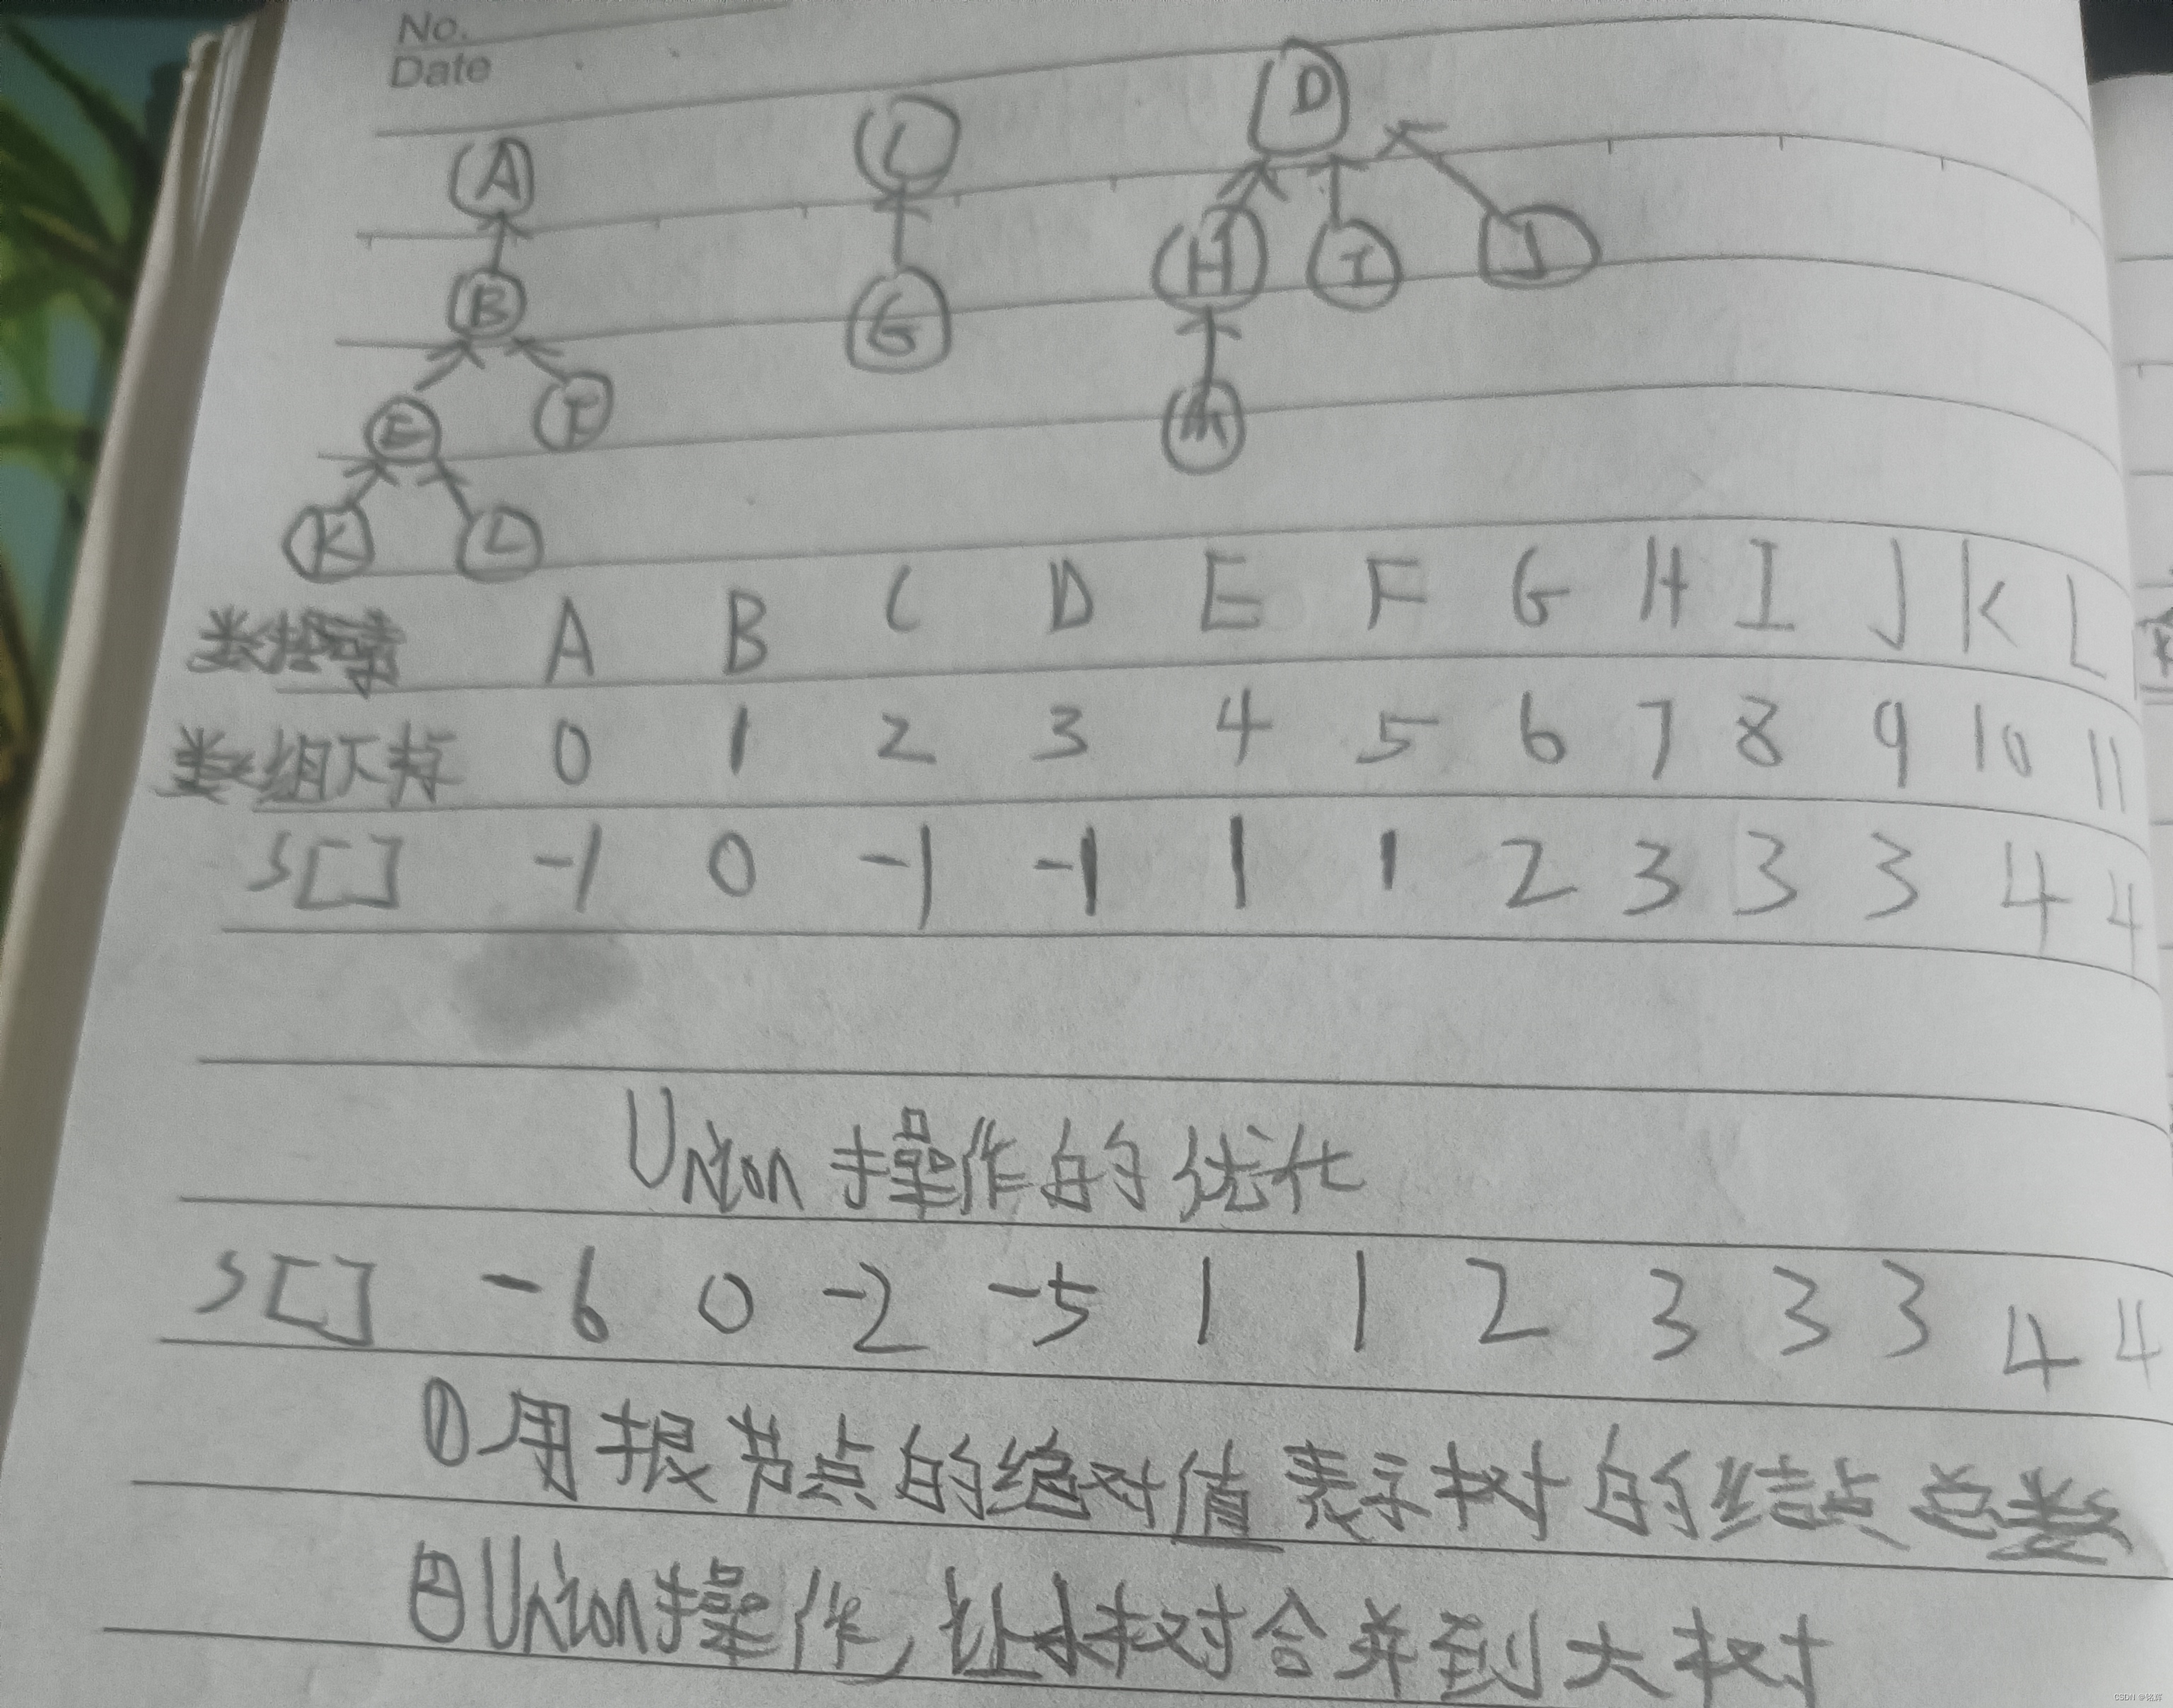 No.
Date
A C D
B G H I J
E F M
K L
数据元素 A B C D E F G H I J K L
数组下标 0 1 2 3 4 5 6 7 8 9 10 11
S[] -1 0 -1 -1 1 1 2 3 3 3 4 4
Union操作的优化
S[] -6 0 -2 -5 1 1 2 3 3 3 4 4
①用根节点的绝对值表示树的结点总数
②Union操作,让小树合并到大树
CSDN @铭辉